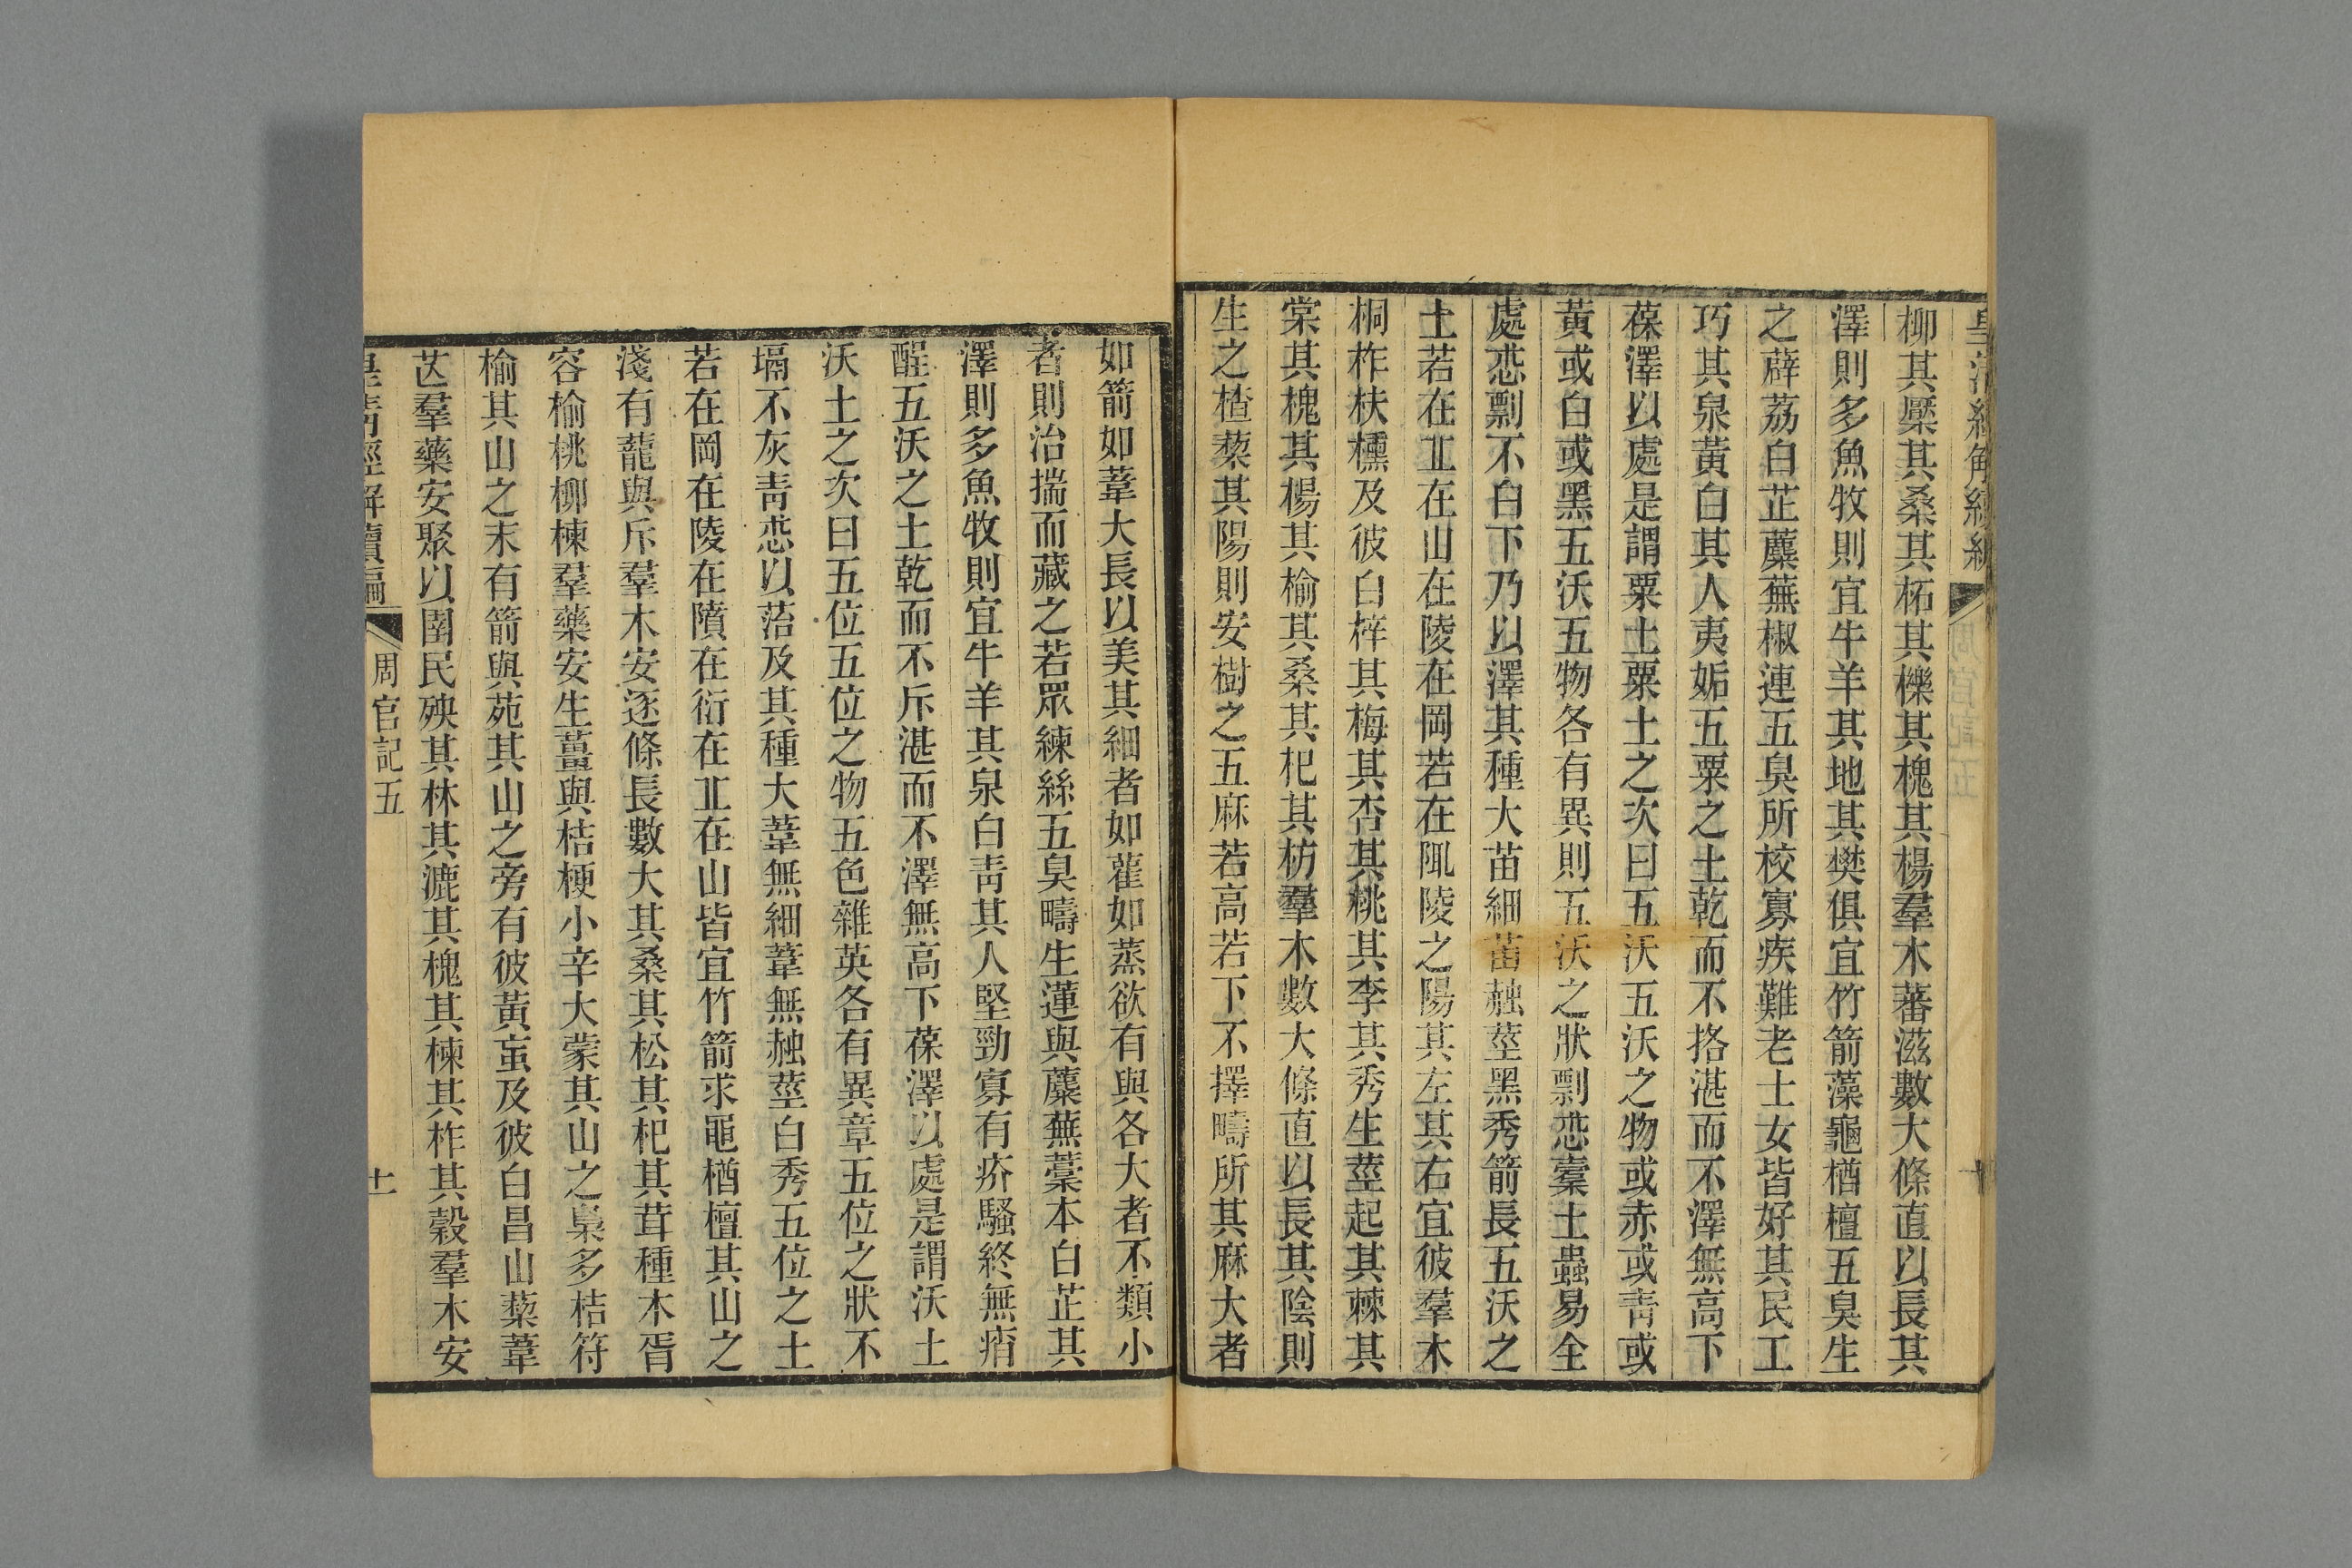 皇清經解續編
周官記五
十
柳其檿其桑其柘其櫟其槐其楊羣木蕃滋數大條直以長其
澤則多魚牧則宜牛羊其地其樊俱宜竹箭藻龜楢檀五臭生
之薜荔白芷蘪蕪椒連五臭所校寡疾難老士女皆好其民工
巧其泉黃白其人夷姤五粟之土乾而不挌湛而不澤無高下
葆澤以處是謂粟土粟土之次曰五沃五沃之物或赤或靑或
黃或白或黑五沃五物各有異則五沃之狀剽恷橐土蟲易全
處恷剽不白下乃以澤其種大苗細苗赨莖黑秀箭長五沃之
土若在丠在山在陵在岡若在陬陵之陽其左其右宜彼羣木
桐柞枎櫄及彼白梓其梅其杏其桃其李其秀生莖起其棘其
棠其槐其楊其榆其桑其杞其枋羣木數大條直以長其陰則
生之楂蔾其陽則安樹之五麻若高若下不擇疇所其麻大者
如箭如葦大長以美其細者如雚如蒸欲有與各大者不類小
者則治揣而藏之若眾練絲五臭疇生蓮與蘪蕪藁本白芷其
澤則多魚牧則宜牛羊其泉白靑其人堅勁寡有疥騷終無痟
酲五沃之土乾而不斥湛而不澤無高下葆澤以處是謂沃土
沃土之次曰五位五位之物五色雜英各有異章五位之狀不
塥不灰靑恷以菭及其種大葦無細葦無赨莖白秀五位之土
若在岡在陵在隫在衍在丠在山皆宜竹箭求黽楢檀其山之
淺有蘢與斥羣木安逐條長數大其桑其松其杞其茸種木胥
容榆桃柳楝羣藥安生薑與桔梗小辛大蒙其山之梟多桔符
榆其山之末有箭與苑其山之旁有彼黃䖟及彼白昌山蔾葦
芒羣藥安聚以圉民殃其林其漉其槐其楝其柞其穀羣木安
皇清經解續編
周官記五
十一